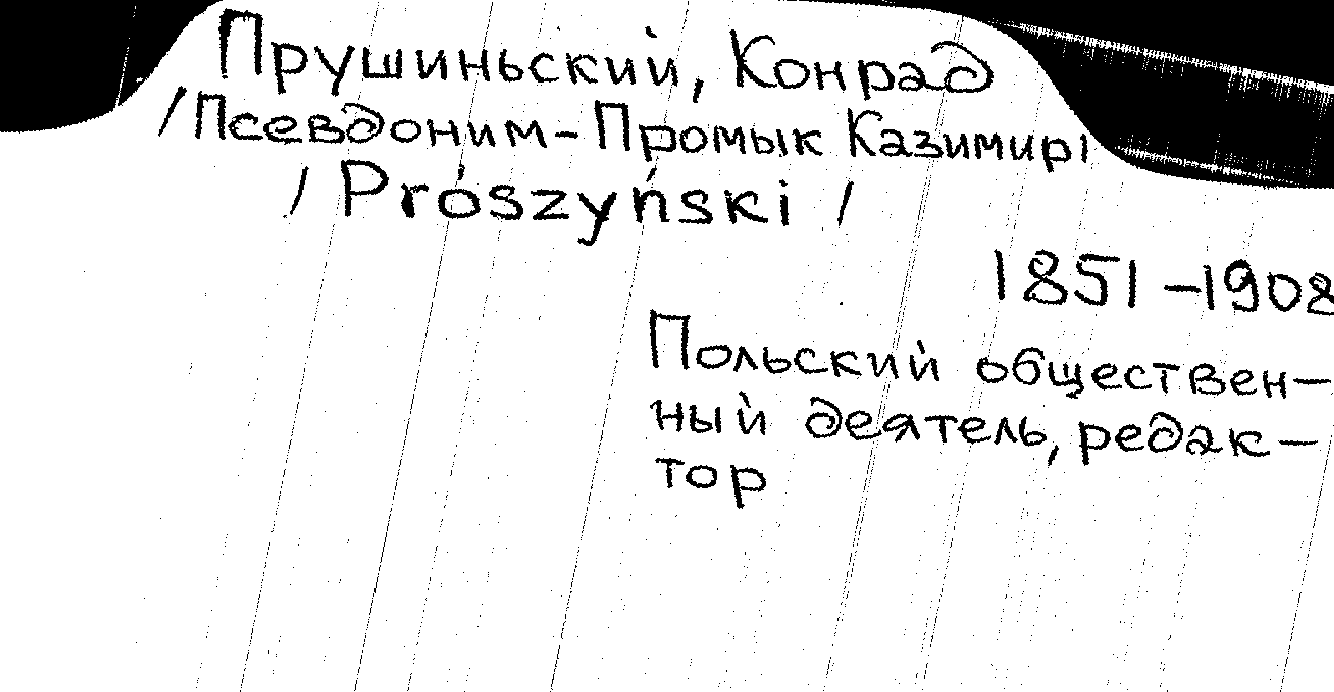 Прушиньский, Конрад
/Псевдоним-Промык Казимир/
/ Prószyński /
1851-1908
Польский обществен-
ный деятель, редак-
тор